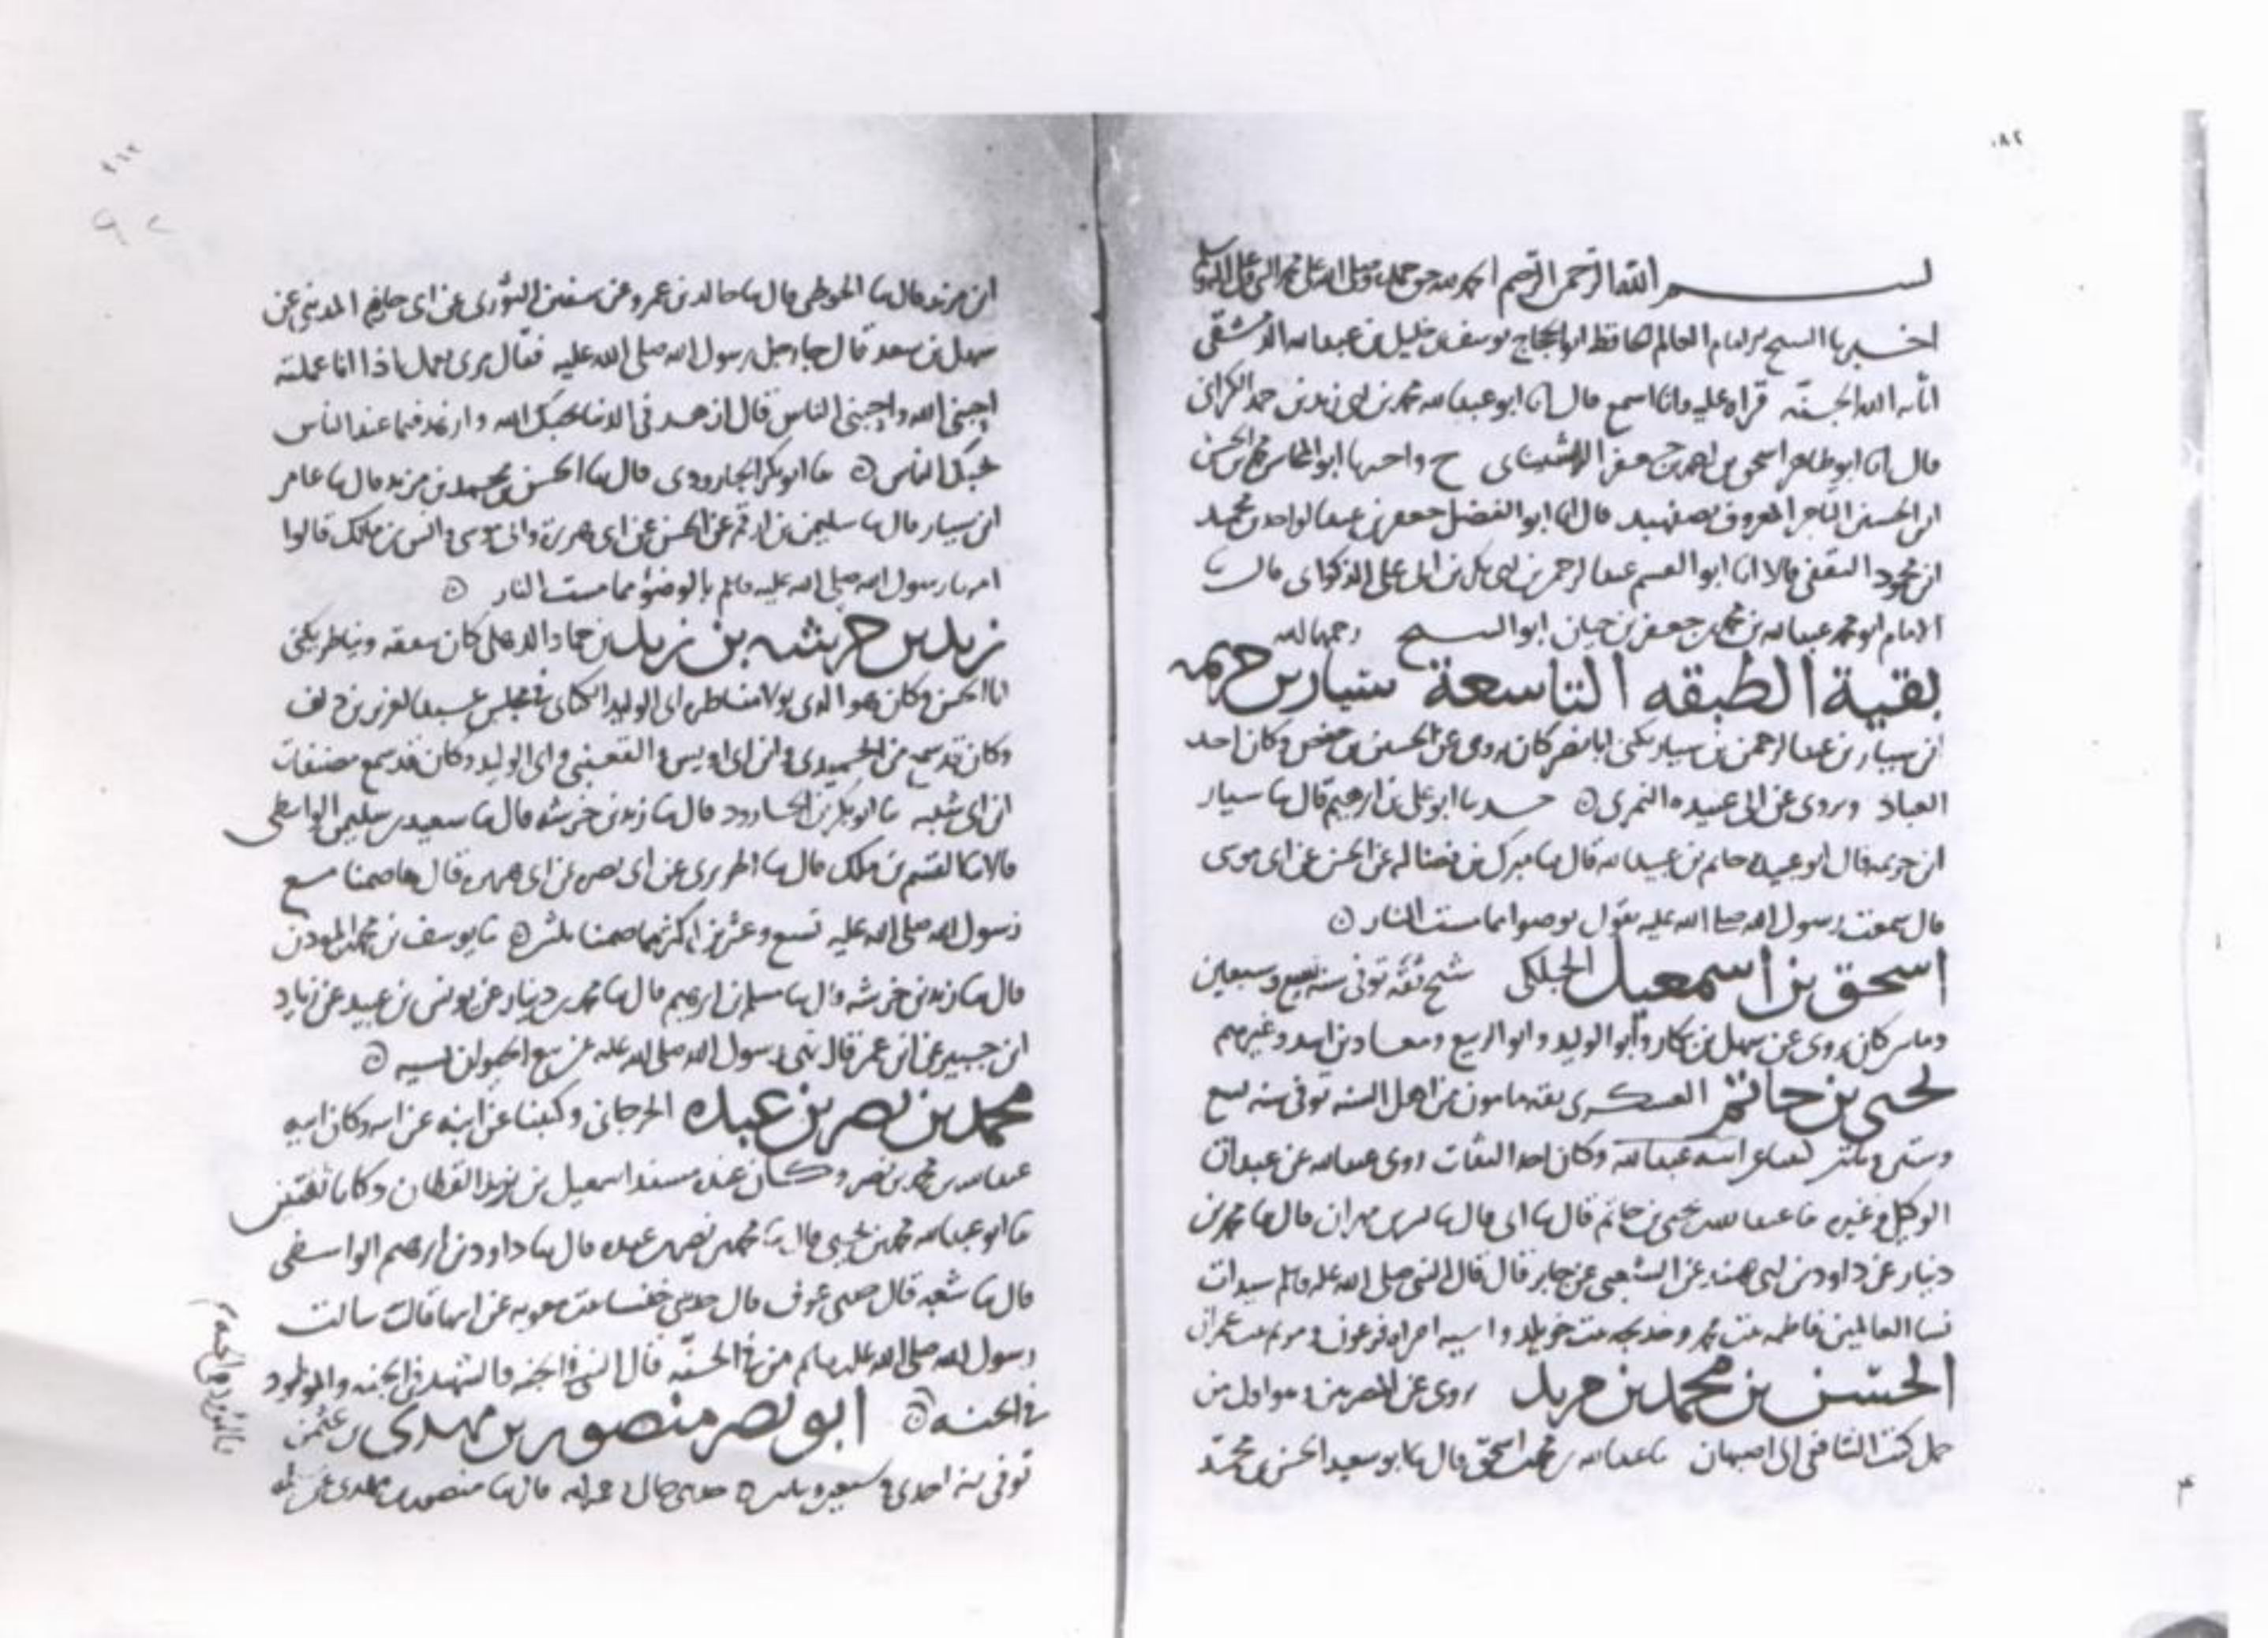 بسم الله الرحمن الرحيم الحمد لله حق حمده وصلى الله على محمد النبي وعلى اله وسلم
اخبرنا الشيخ الامام العالم الحافظ ابو الحجاج يوسف بن خليل بن عبد الله الدمشقي
اثابه الله الجنة قراة عليه وانا اسمع قال انا ابو عبد الله محمد بن ابي زيد بن حمد الكراني
قال انا ابو طاهر اسحق بن احمد بن جعفر الراشتيناني ح واخبرنا ابو المحاسن محمد بن الحسن
ابن الحسين التاجر المعروف باصفهبد قال انا ابو الفضل جعفر بن عبد الواحد بن محمد
ابن محمود الثقفي قالا انا ابو القسم عبد الرحمن بن ابي بكر بن ابي علي الذكواني قال ثنا
الامام ابو محمد عبد الله بن محمد بن جعفر بن حيان ابو الشيخ رحمه الله
بقية الطبقه التاسعة سيار بن خزيمه
ابن سيار بن عبد الرحمن بن سيار يكنى ابا نصر كان يروي عن الحسين بن حفص وكان احد
العباد ويروي عن ابي عبيده النمري حدثنا ابو علي بن ابرهيم قال ثنا سيار
ابن خزيمه قال ابو عبيده حاتم بن عبيد الله قال ثنا مبرك بن فضاله عن الحسن عن ابي موسى
قال سمعت رسول الله صلى الله عليه يقول توضوا مما مست النار
اسحق بن اسمعيل الجلكي شيخ ثقة توفي سنة تسع وسبعين
ومايتين كان يروي عن سهل بن بكار وابو الوليد وابو الربيع ومعاذ بن اسد وغيرهم
يحيى بن حاتم العسكري ثقة مامون من اهل السنة توفي سنة تسع
وستين ومايتين ابنه عبد الله وكان احد الثقات روى عبد الله عن عبدان
الوكيل وغيره ثنا عبد الله بن يحيى بن حاتم قال ثنا ابي قال ثنا بشر بن مهران قال ثنا محمد بن
دينار عن داود بن ابي هند عن الشعبي عن جابر قال قال النبي صلى الله عليه وسلم سيدات
نسا العالمين فاطمه بنت محمد وخديجه بنت خويلد واسيه امراه فرعون ومريم بنت عمران
الحسن بن محمد بن مزيد روى عن المصريين وهو اول من
حمل كتب الشافعي الى اصبهان ثنا عبد الله بن محمد بن اسحق قال ثنا ابو سعيد الحسن بن محمد
ابن مزيد قال ثنا الحوطي قال ثنا خالد بن عمرو عن سفين الثوري عن ابي حازم المديني عن
سهل بن سعد قال جا رجل رسول الله صلى الله عليه فقال مرني بعمل اذا انا عملته
احبني الله واحبني الناس قال ازهد في الدنيا يحبك الله وازهد فيما عند الناس
يحبك الناس ثنا ابو بكر الجارودي قال ثنا الحسن بن محمد بن مزيد قال ثنا عامر
ابن سيار قال ثنا سليمن بن ارقم عن الحسن عن ابي هريرة وابي موسى وانس بن ملك قالوا
امرنا رسول الله صلى الله عليه وسلم بالوضوء مما مست النار
زيد بن خرشه بن زيد بن حماد الذهلي كان يتفقه ويناظر يكنى
ابا الحسن وكان هو الذي تولا مناظره ابي الوليد الكناني في مجلس عبد العزيز بن دلف
وكان قد سمع من الحميدي وابن ابي اويس والقعنبي وابي الوليد وكان قد سمع مصنفات
ابن ابي شيبه ثنا ابو بكر بن الجارود قال ثنا زيد بن خرشه قال ثنا سعيد بن سليمن الواسطي
قال ثنا القسم بن ملك قال ثنا الجريري عن ابي نضره عن ابي هريره قال ما صمنا مع
رسول الله صلى الله عليه تسع وعشرين اكثر مما صمنا ثلثين ثنا يوسف بن محمد المؤذن
قال ثنا زيد بن خرشه قال ثنا مسلم بن ابرهيم قال ثنا محمد بن دينار عن يونس بن عبيد عن زياد
ابن جبير عن ابن عمر قال نهى رسول الله صلى الله عليه عن بيع الحيوان نسيه
محمد بن نصر بن عبده الخرجاني وكتبنا عن ابنه عن ابيه وكان ابنه
عبد الله بن محمد بن نصر وكان عنده مسند اسمعيل بن يزيد القطان وكانا ثقتين
ثنا ابو عبد الله محمد بن يحيى قال ثنا محمد بن نصر بن عبده قال ثنا داود بن ابرهيم الواسطي
قال ثنا شعبه قال حدثني عوف قال حدثتني خنسا بنت معويه عن ابيها قالت سالت
رسول الله صلى الله عليه وسلم من في الجنة قال النبي في الجنه والشهيد في الجنه والمولود
في الجنه ابو نصر منصور بن مهدي بن عثمن
والموؤدة في الجنه
توفي سنة احدى وسبعين ومايتين حدثني خالي رحمه الله قال ثنا منصور بن مهدي